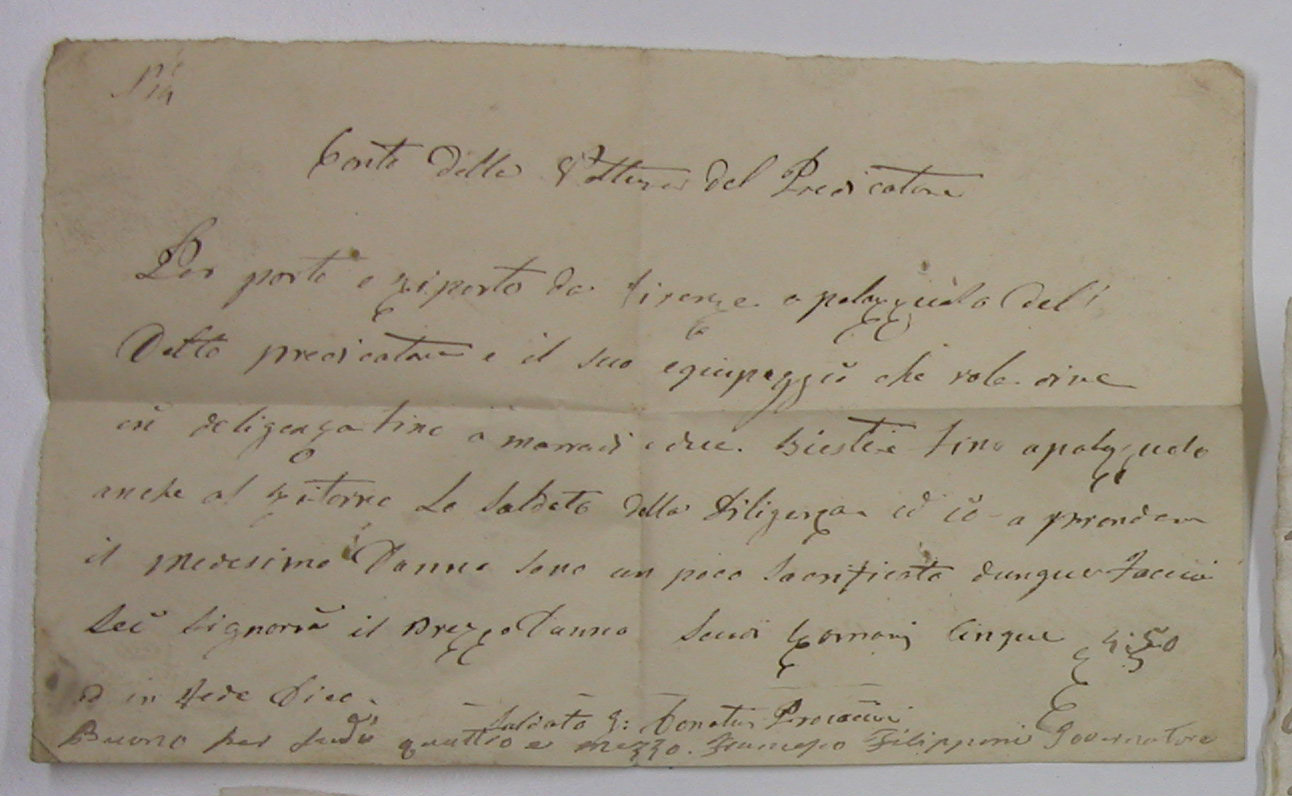 N° 14
Conto della Vettura del Predicatore
Per porto e riporto da firenze a palazzuolo del
Detto predicatore e il suo equipaggio che vole dire
in deligenza fino a marradi e due Bestie fino a palazuolo
anche al ritorno Lo Saldato della Diligenza ed io a prendere
il medesimo Danno sono un poco Sacrificato dunque Faccia
Lei Signoria il Prezzo Danno Scudi Romani Cinque 4:50
ed in Fede Dico
Saldato Donato
Buono per scudi quattro e mezzo. Francesco Filipponi Governatore